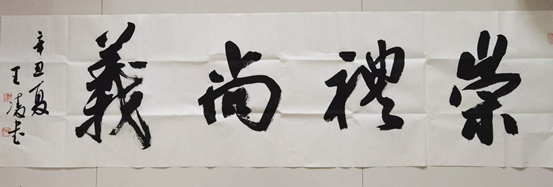 崇禮尚義
辛丑夏
王